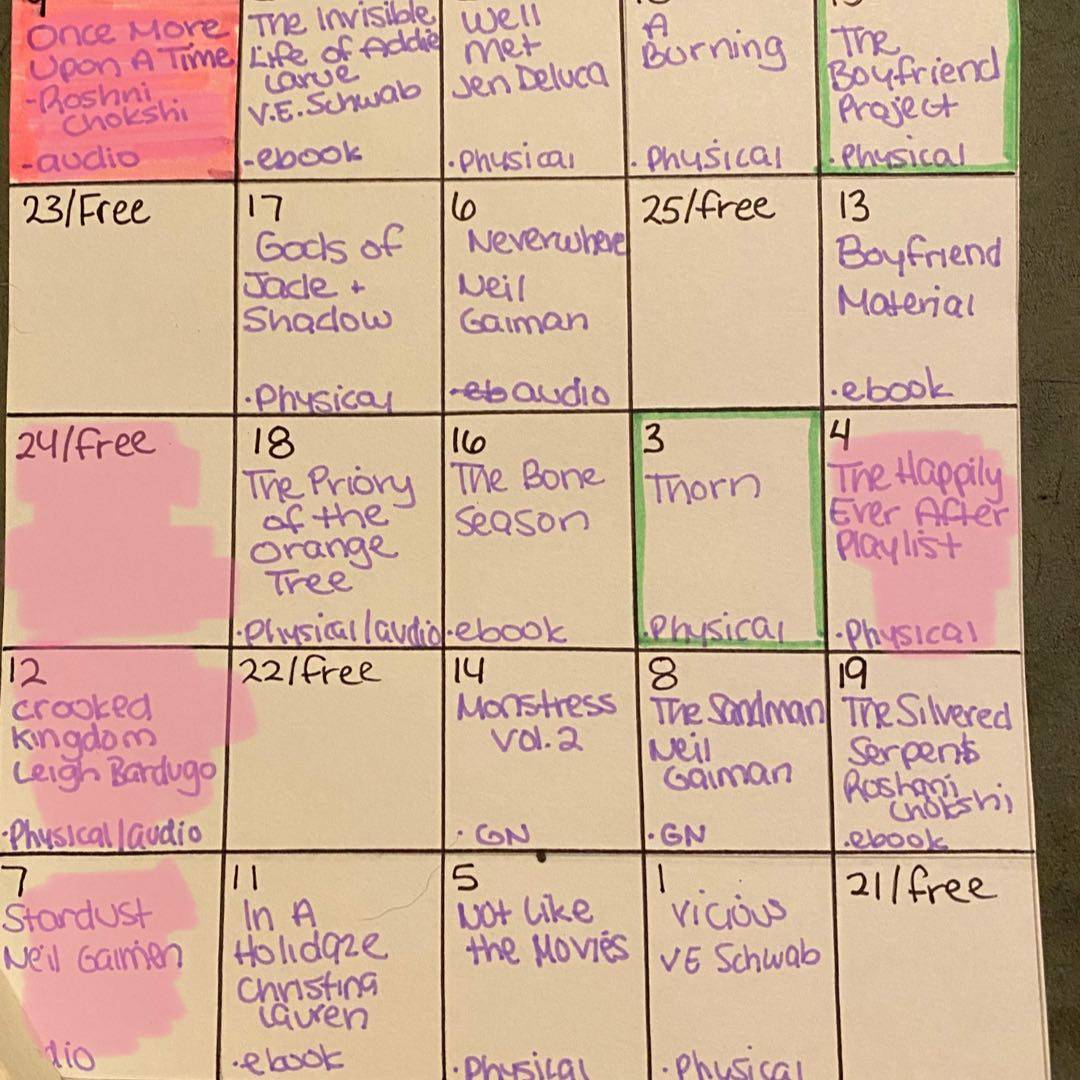 9
Once More
Upon A Time
-Roshni
Chokshi
-audio
The Invisible
Life of Addie
Larue
V.E. Schwab
-ebook
Well
Met
Jen Deluca
·Physical
A
Burning
·Physical
The
Boyfriend
Project
·Physical
23/Free
17
Gods of
Jade +
Shadow
·Physical
6
Neverwhere
Neil
Gaiman
-eb audio
25/free
13
Boyfriend
Material
·ebook
24/free
18
The Priory
of the
Orange
Tree
·Physical/audio
16
The Bone
Season
·ebook
3
Thorn
·Physical
4
The Happily
Ever After
Playlist
·Physical
12
Crooked
Kingdom
Leigh Bardugo
·Physical/audio
22/free
14
Monstress
Vol. 2
· GN
8
The Sandman
Neil
Gaiman
·GN
19
The Silvered
Serpents
Roshani
Chokshi
·ebook
7
Stardust
Neil Gaimen
dio
11
In A
Holidaze
Christina
Lauren
·ebook
5
Not Like
the Movies
·Physical
1
Vicious
VE Schwab
·Physical
21/free